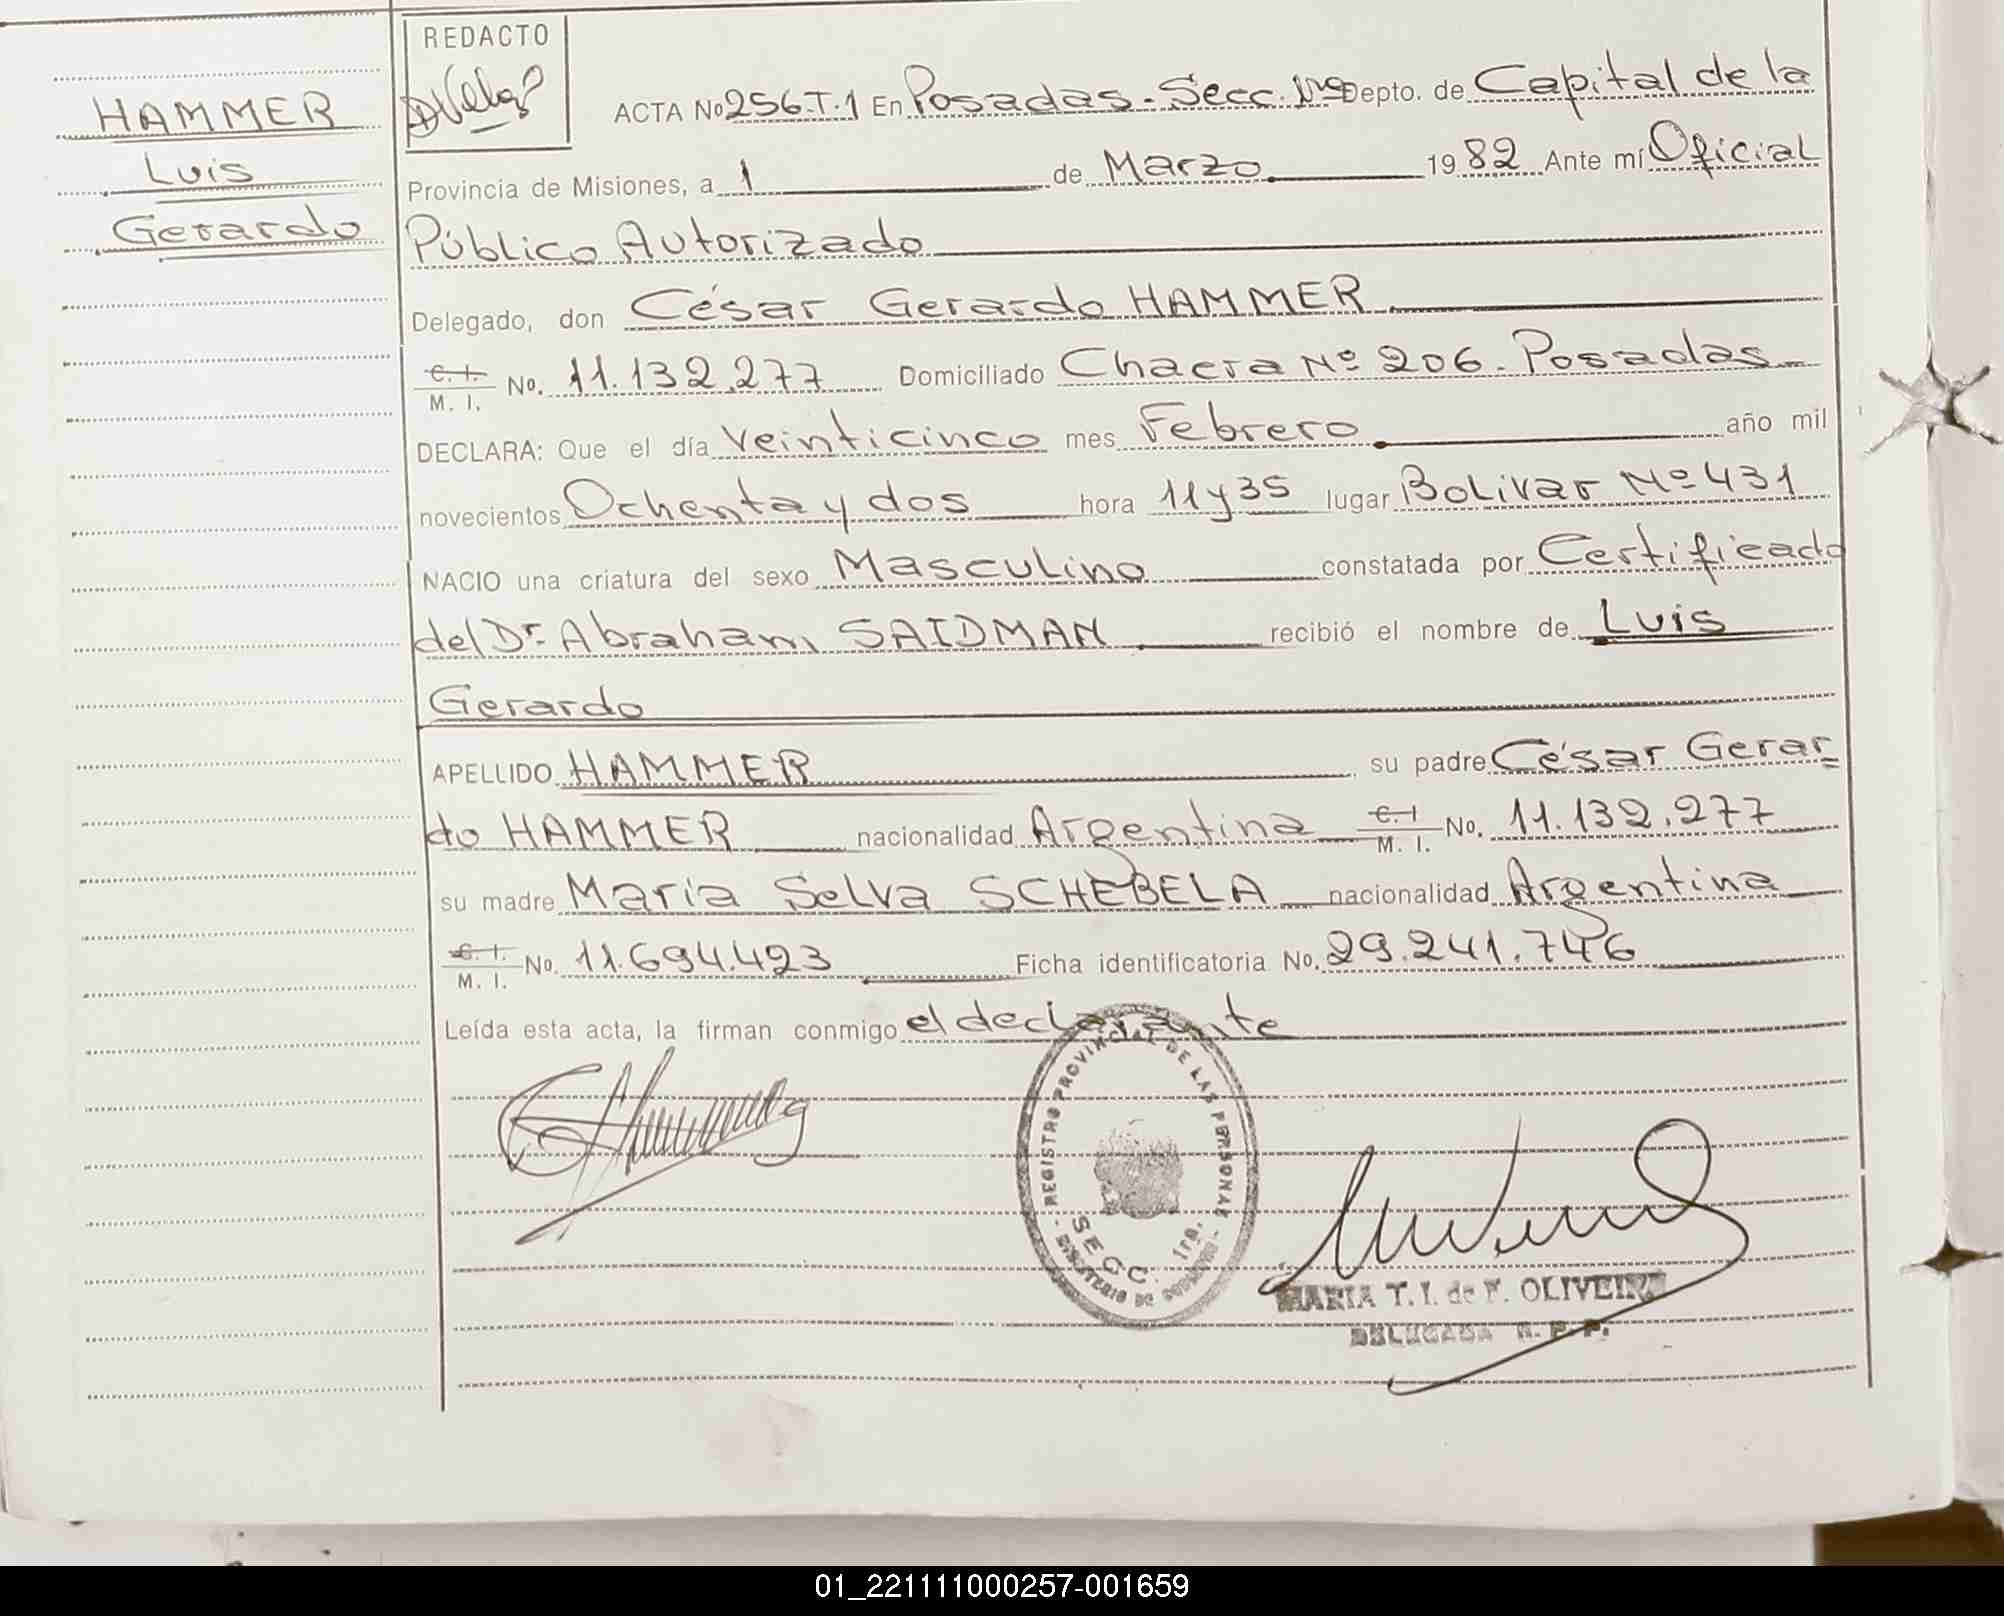 HAMMER
Luis
Gerardo
REDACTO
ACTA No 256.T.1 En Posadas. Secc. 1ra Depto. de Capital de la
Provincia de Misiones, a 1 de Marzo 1982 Ante mí Oficial
Público Autorizado
Delegado, don César Gerardo HAMMER
C. I. / M. I. No. 11.132.277 Domiciliado Chacra Nº 206. Posadas
DECLARA: Que el día Veinticinco mes Febrero año mil
novecientos Ochenta y dos hora 11 y 35 lugar Bolivar Nº 431
NACIO una criatura del sexo Masculino constatada por Certificado
del Dr. Abraham SAIDMAN recibió el nombre de Luis
Gerardo
APELLIDO HAMMER su padre César Gerar=
do HAMMER nacionalidad Argentina C. I / M. I. No. 11.132.277
su madre María Selva SCHEBELA nacionalidad Argentina
C. I. / M. I. No. 11.694.423 Ficha identificatoria No. 29.241.746
Leída esta acta, la firman conmigo el declarante
REGISTRO PROVINCIAL DE LAS PERSONAS
SECC. 1ra.
MINISTERIO DE GOBIERNO
MARIA T. I. de F. OLIVEIRA
DELEGADA R. P. P.
01_221111000257-001659